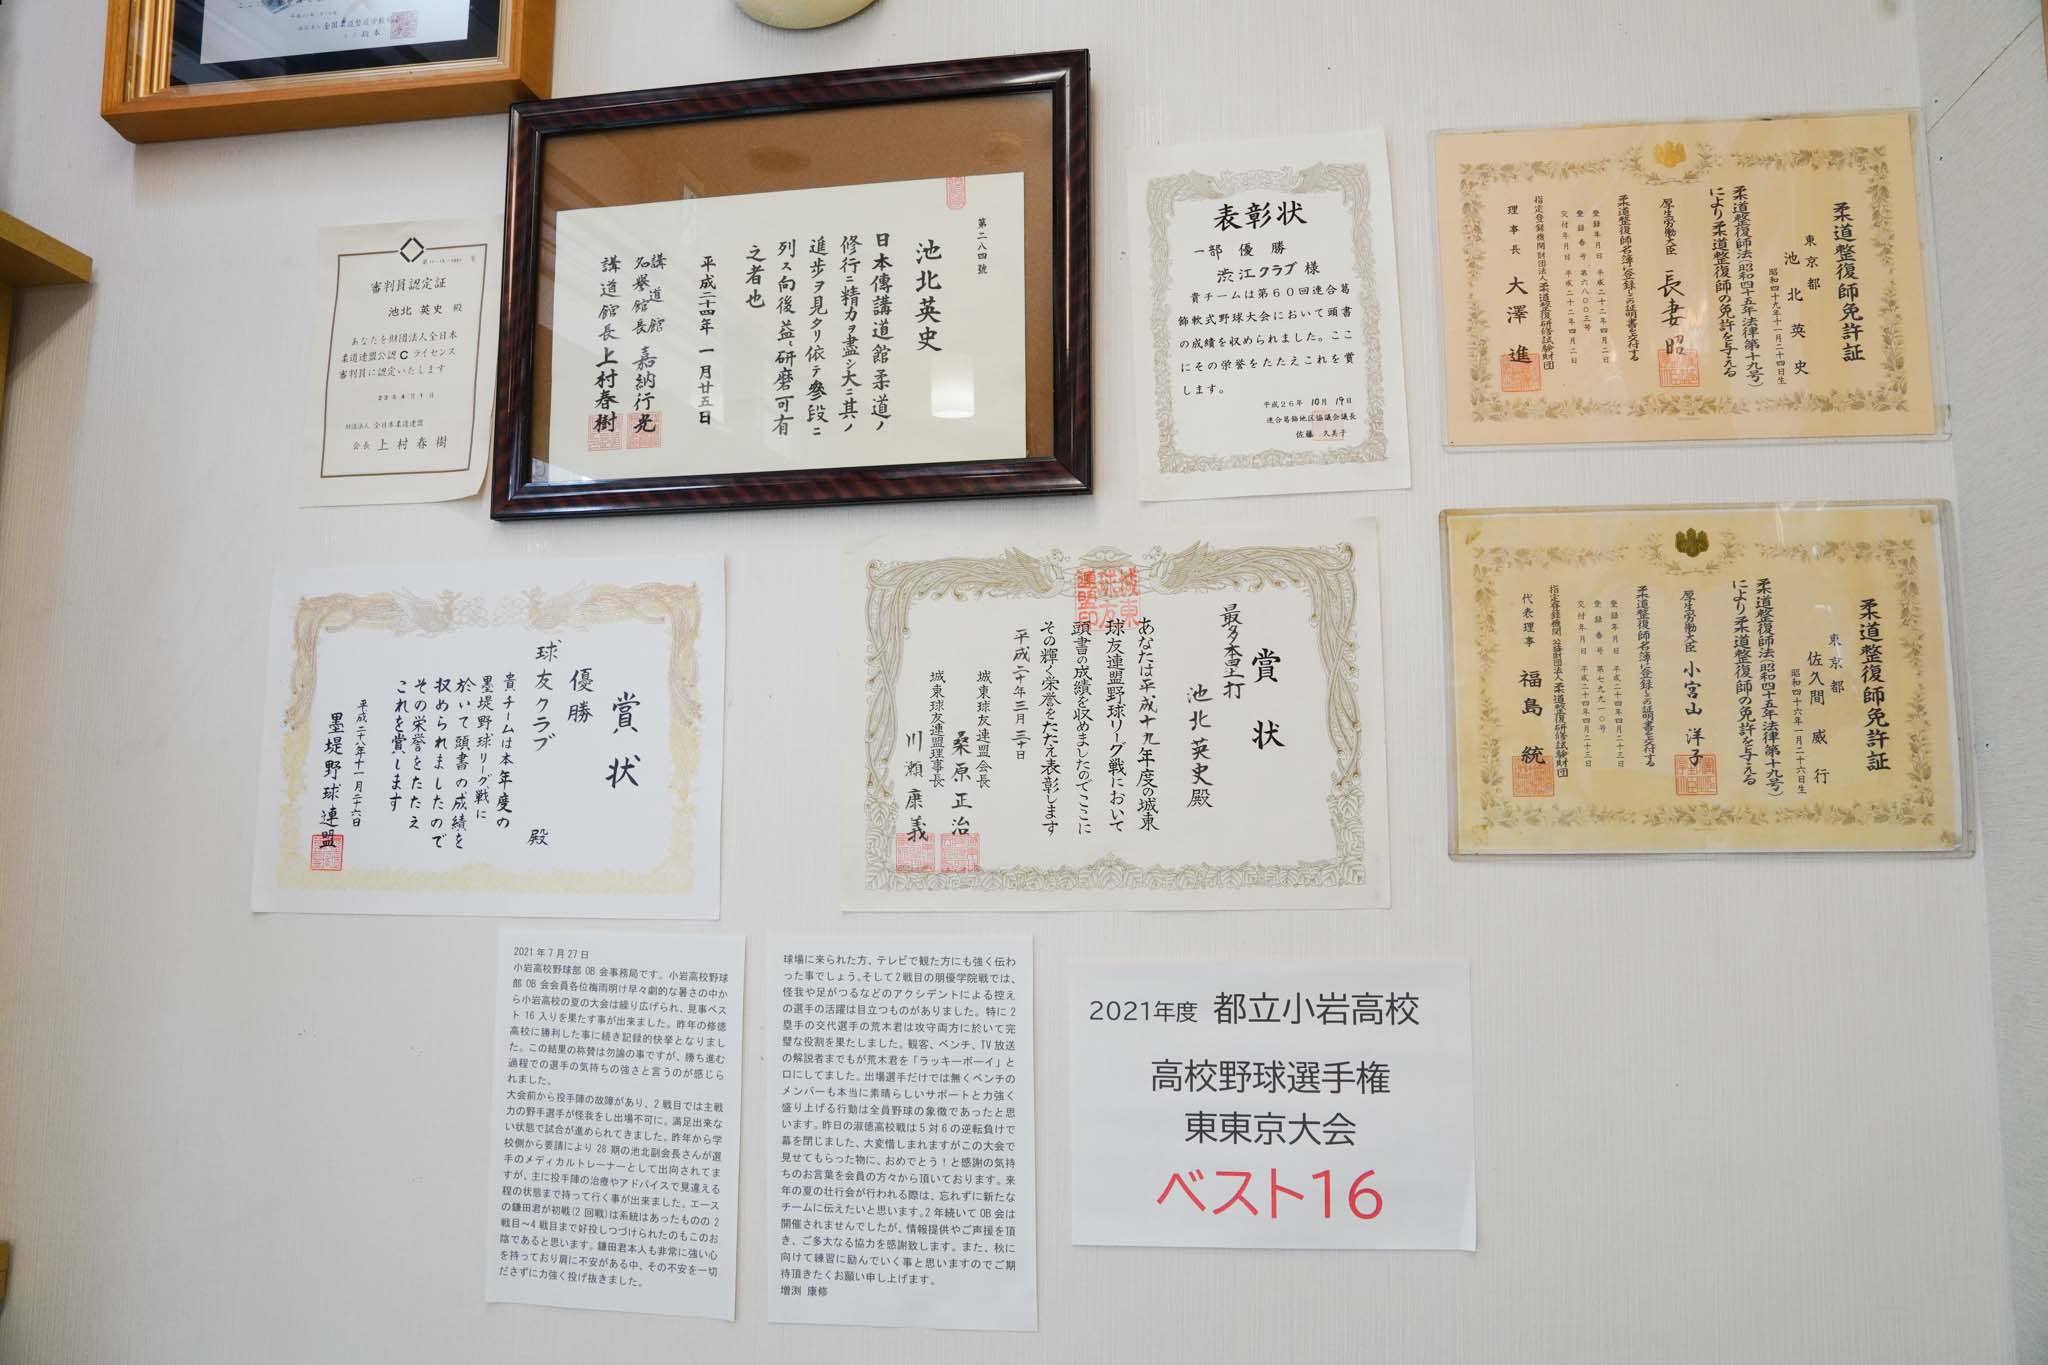 審判員認定証
池北 英史 殿
あなたを財団法人全日本
柔道連盟公認Cライセンス
審判員に認定いたします
23年4月1日
財団法人 全日本柔道連盟
会長 上村春樹
第二八四號
池北英史
日本傳講道館柔道ノ
修行ニ精力ヲ盡シ大ニ其ノ
進歩ヲ見タリ依テ參段ニ
列ス向後益〻研磨可有
之者也
平成二十四年一月廿五日
講道館
名誉館長 嘉納行光
講道館長 上村春樹
表彰状
一部 優勝
渋江クラブ 様
貴チームは第60回連合葛
飾軟式野球大会において頭書
の成績を収められました。ここ
にその栄誉をたたえこれを賞
します。
平成26年10月19日
連合葛飾地区協議会議長
佐藤 久美子
柔道整復師免許証
東京都
池北英史
昭和四十九年十一月二十四日生
柔道整復師法(昭和四十五年法律第十九号)
により柔道整復師の免許を与える
厚生労働大臣 長妻昭
柔道整復師名簿に登録しこの証明書を交付する
登録年月日 平成二十二年四月二日
登録番号 第六八〇〇三号
交付年月日 平成二十二年四月二日
指定登録機関財団法人柔道整復研修試験財団
理事長 大澤進
賞状
優勝
球友クラブ 殿
貴チームは本年度の
墨堤野球リーグ戦に
於いて頭書の成績を
収められましたので
その栄誉をたたえ
これを賞します
平成二十八年十一月二十六日
墨堤野球連盟
賞状
最多本塁打
池北英史殿
あなたは平成十九年度の城東
球友連盟野球リーグ戦において
頭書の成績を収めましたのでここに
その輝く栄誉をたたえ表彰します
平成二十年三月三十日
城東球友連盟会長
桑原正治
城東球友連盟理事長
川瀬康義
城東球友連盟印
柔道整復師免許証
東京都
佐久間威行
昭和四十六年一月二十六日生
柔道整復師法(昭和四十五年法律第十九号)
により柔道整復師の免許を与える
厚生労働大臣 小宮山洋子
柔道整復師名簿に登録しこの証明書を交付する
登録年月日 平成二十四年四月二十三日
登録番号 第七九九一〇号
交付年月日 平成二十四年四月二十三日
指定登録機関 公益財団法人柔道整復研修試験財団
代表理事 福島統
2021年7月27日
小岩高校野球部OB会事務局です。小岩高校野球
部OB会会員各位梅雨明け早々劇的な暑さの中か
ら小岩高校の夏の大会は繰り広げられ、見事ベス
ト16入りを果たす事が出来ました。昨年の修徳
高校に勝利した事に続き記録的快挙となりまし
た。この結果の称賛は勿論の事ですが、勝ち進む
過程での選手の気持ちの強さと言うのが感じら
れました。
大会前から投手陣の故障があり、2戦目では主戦
力の野手選手が怪我をし出場不可に。満足出来な
い状態で試合が進められてきました。昨年から学
校側から要請により28期の池北副会長さんが選
手のメディカルトレーナーとして出向されてま
すが、主に投手陣の治療やアドバイスで見違える
程の状態まで持って行く事が出来ました。エース
の鎌田君が初戦(2回戦)は系統はあったものの2
戦目〜4戦目まで好投しつづけられたのもこのお
陰であると思います。鎌田君本人も非常に強い心
を持っており肩に不安がある中、その不安を一切
ださずに力強く投げ抜きました。
球場に来られた方、テレビで観た方にも強く伝わ
った事でしょう。そして2戦目の朋優学院戦では、
怪我や足がつるなどのアクシデントによる控え
の選手の活躍は目立つものがありました。特に2
塁手の交代選手の荒木君は攻守両方に於いて完
璧な役割を果たしました。観客、ベンチ、TV放送
の解説者までもが荒木君を「ラッキーボーイ」と
口にしてました。出場選手だけでは無くベンチの
メンバーも本当に素晴らしいサポートと力強く
盛り上げる行動は全員野球の象徴であったと思
います。昨日の淑徳高校戦は5対6の逆転負けで
幕を閉じました、大変惜しまれますがこの大会で
見せてもらった物に、おめでとう!と感謝の気持
ちのお言葉を会員の方々から頂いております。来
年の夏の壮行会が行われる際は、忘れずに新たな
チームに伝えたいと思います。2年続いてOB会は
開催されませんでしたが、情報提供やご声援を頂
き、ご多大なる協力を感謝致します。また、秋に
向けて練習に励んでいく事と思いますのでご期
待頂きたくお願い申し上げます。
増渕 康修
2021年度 都立小岩高校
高校野球選手権
東東京大会
ベスト16